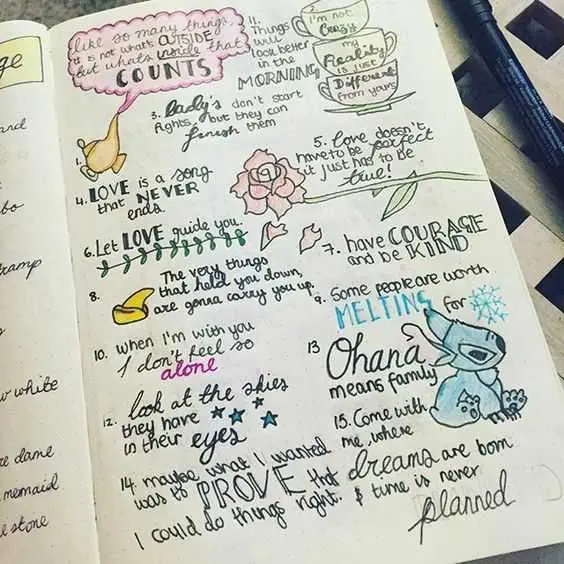 ge
and
bo
tramp
w white
e dame
mermaid
e stone
1.
like so many things,
it is not what's OUTSIDE
but what's inside that
COUNTS
11.
Things
will
look better
in the
MORNING
2
I'm not
Crazy
my
Reality
is just
Different
from yours
3. lady's don't start
fights, but they can
finish them
4. LOVE is a song
that NEVER
ends.
5. Love doesn't
have to be perfect
it just has to be
true!
6. Let LOVE guide you.
7. have COURAGE
and be KIND
8.
The very things
that held you down,
are gonna carry you up.
9. Some people are worth
MELTING for
10. when I'm with you
I don't feel so
alone
12. look at the skies
they have
in their eyes
13 Ohana
means family
14. maybe what I wanted
was to PROVE that
I could do things right.
15. Come with
me, where
dreams are born
& time is never
planned